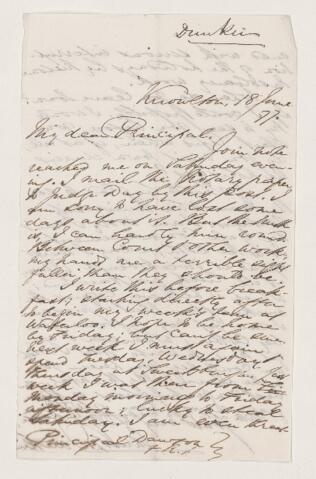 Dunkin
Knowlton, 18 June
77.
My dear Principal,
Your note
reached me on Saturday even-
ing. I mail the History papers
to Judge Day by this post. I
am sorry to have lost some
days about it. But the truth
is, I can hardly turn round.
Between Court & other work,
my hands are a terrible sight
fuller than they should be.
I write this before break-
fast; starting directly after
to begin my week's term at
Waterloo. I hope to be home
by Friday; but can't be sure.
Next week I must again
spend Tuesday, Wednesday &
Thursday at Sweetsburg. Last
week I was there from
Monday morning to Friday
afternoon; lucky to steal
Saturday. I am even break
Principal Dawson